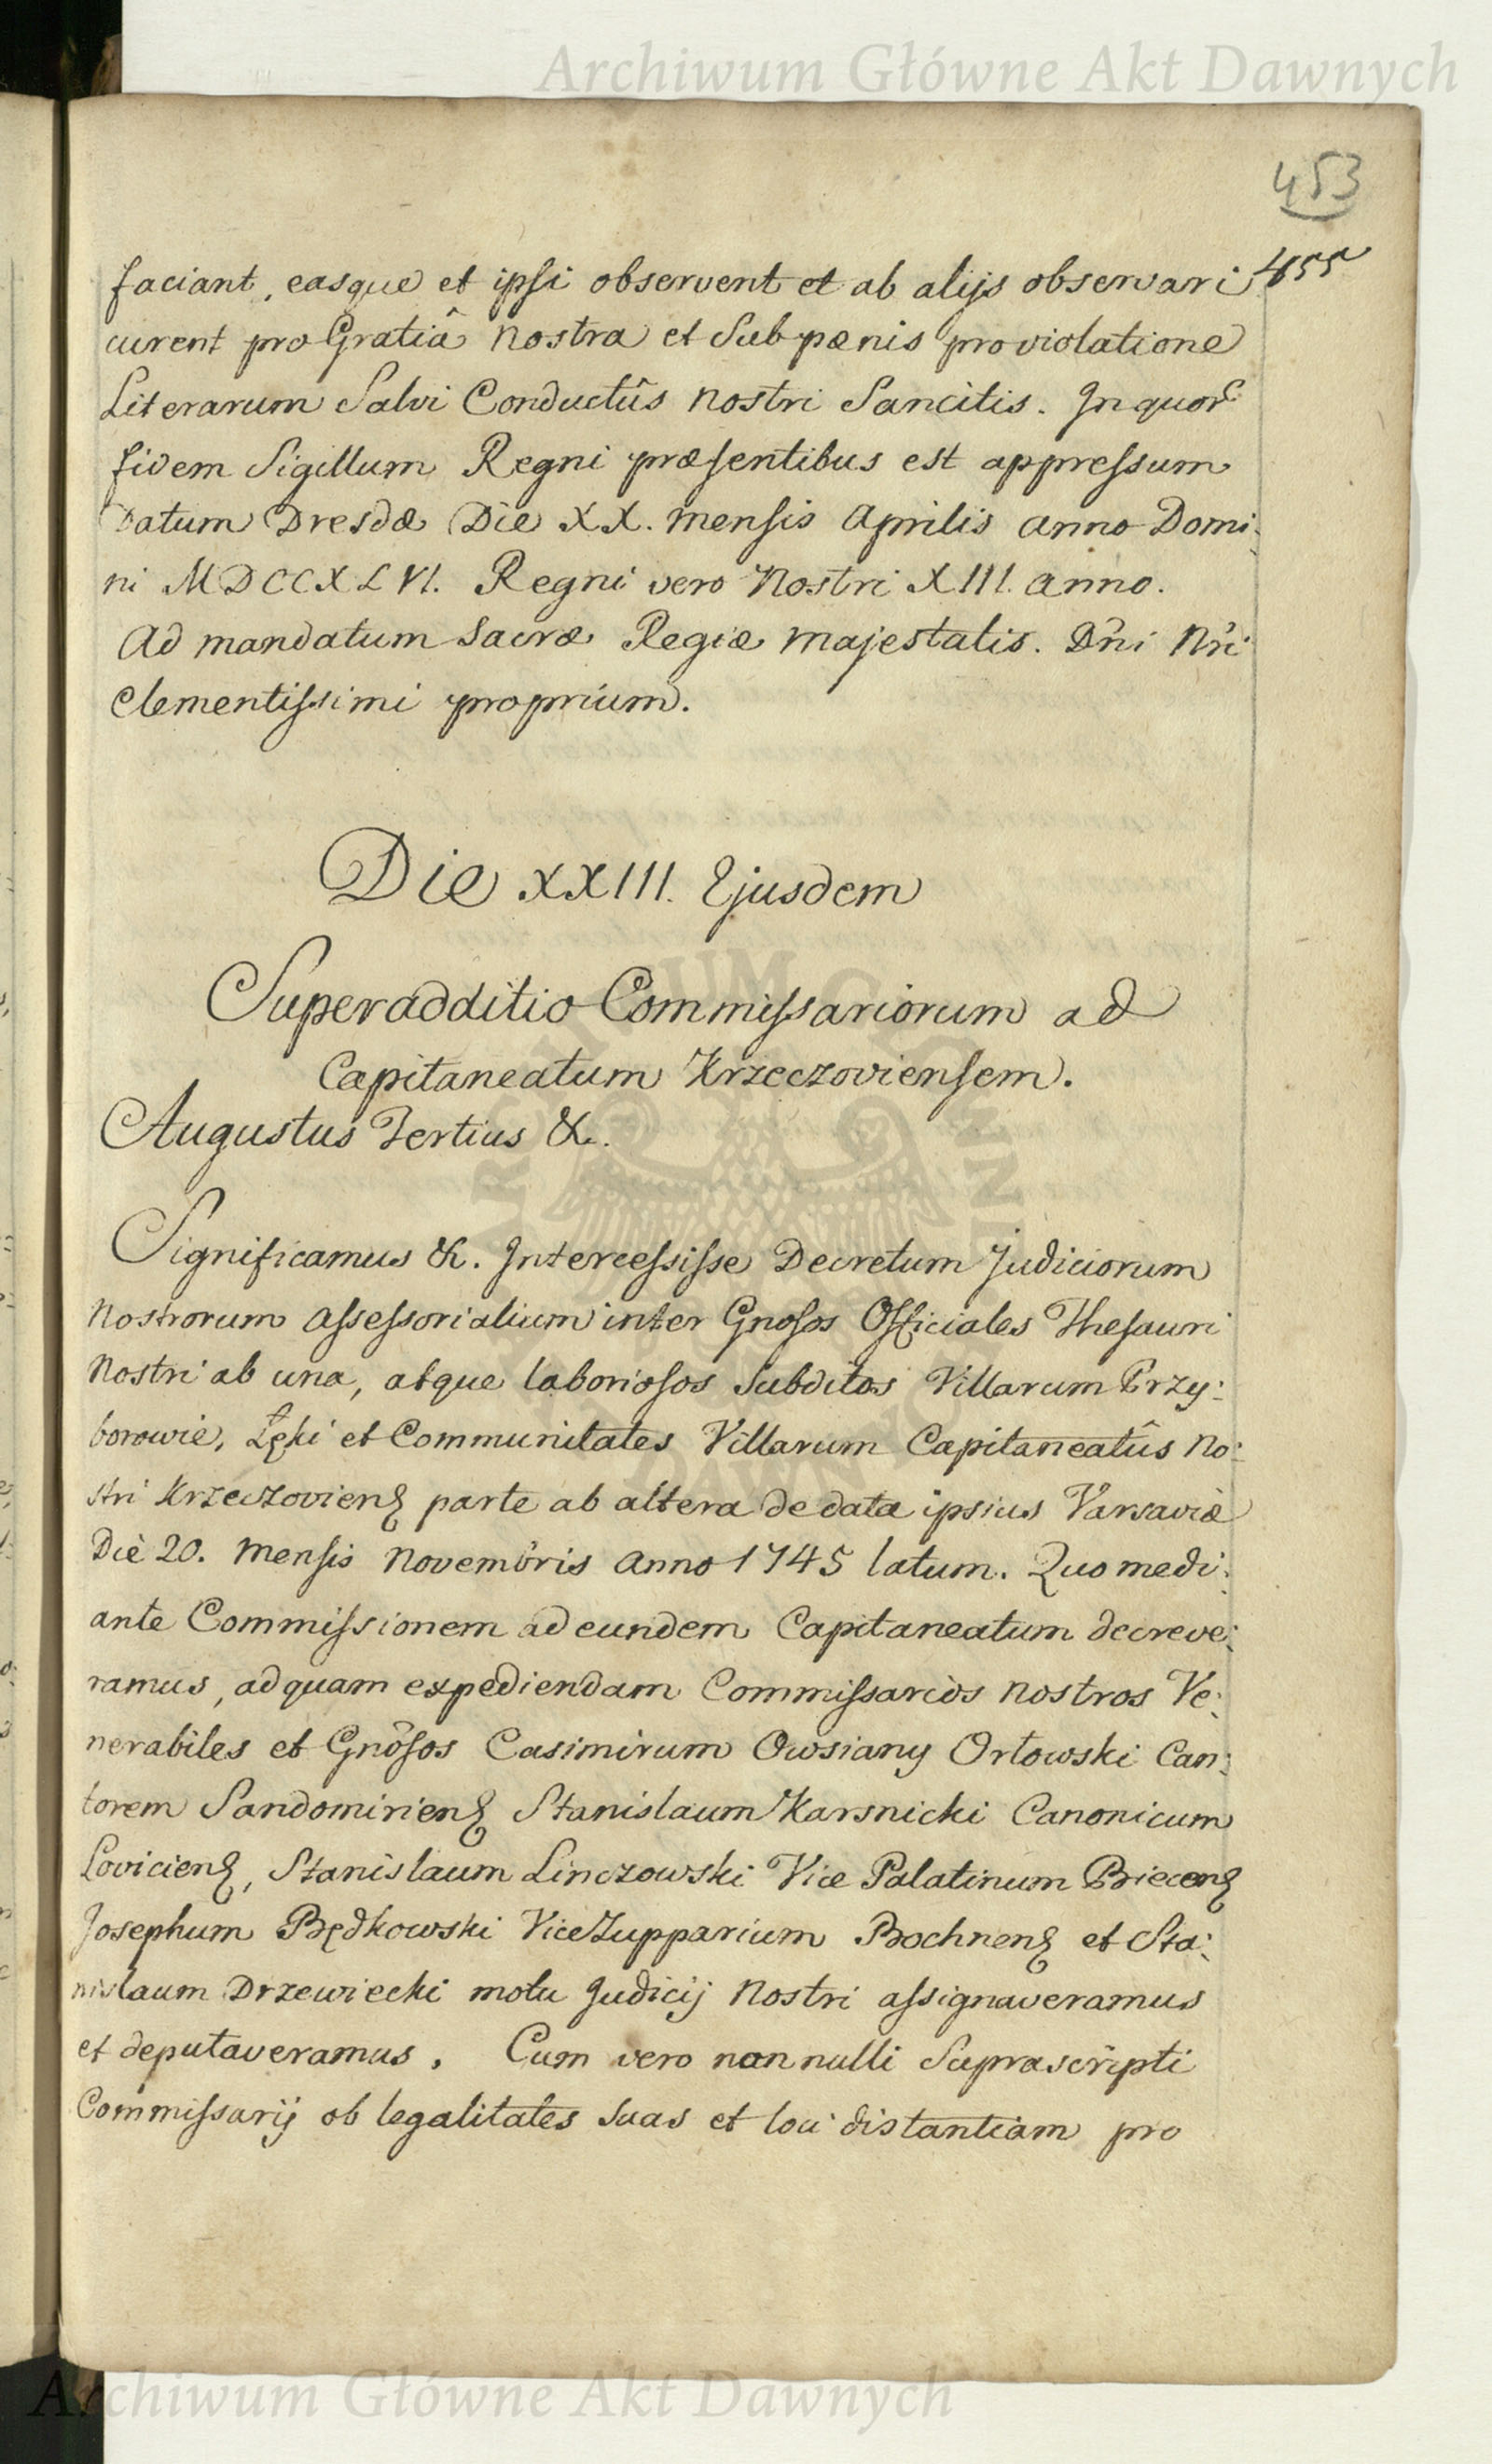 Archiwum Główne Akt Dawnych
453
455
faciant, easque et ipsi observent et ab alijs observari
curent pro Gratiâ Nostra et Sub pœnis pro violatione
Literarum Salvi Conductûs Nostri Sancitis. In quor
fidem Sigillum Regni præsentibus est appressum
Datum Dresdæ Die XX. Mensis Aprilis Anno Domi:
ni MDCCXLVI. Regni vero Nostri XIII. anno.
Ad mandatum Sacræ Regiæ Majestatis. Dñi Nri
Clementissimi proprium.
Die XXIII. Ejusdem
Superadditio Commissariorum ad
Capitaneatum Krzeczoviensem.
Augustus Tertius &.
Significamus &. Intercessisse Decretum Judiciorum
Nostrorum Assessorialium inter Gnosos Officiales Thesauri
Nostri ab una, atque laboriosos Subditos Villarum Przy:
borowie, Łęki et Communitates Villarum Capitaneatûs No:
stri Krzeczovien parte ab altera de data ipsius Varsaviæ
Die 20. Mensis Novembris Anno 1745 latum. Quo medi:
ante Commissionem ad eundem Capitaneatum decreve:
ramus, ad quam expediendam Commissarios Nostros Ve:
nerabiles et Gnosos Casimirum Owsiany Orłowski Can:
torem Sandomirien Stanislaum Karsnicki Canonicum
Lovicien, Stanislaum Linczowski Vice Palatinum Biecen
Josephum Będkowski ViceZupparium Bochnen et Sta:
nislaum Drzewiecki motu Judicij Nostri assignaveramus
et deputaveramus. Cum vero non nulli Suprascripti
Commissarij ob legalitates suas et loci distantiam pro
Archiwum Główne Akt Dawnych